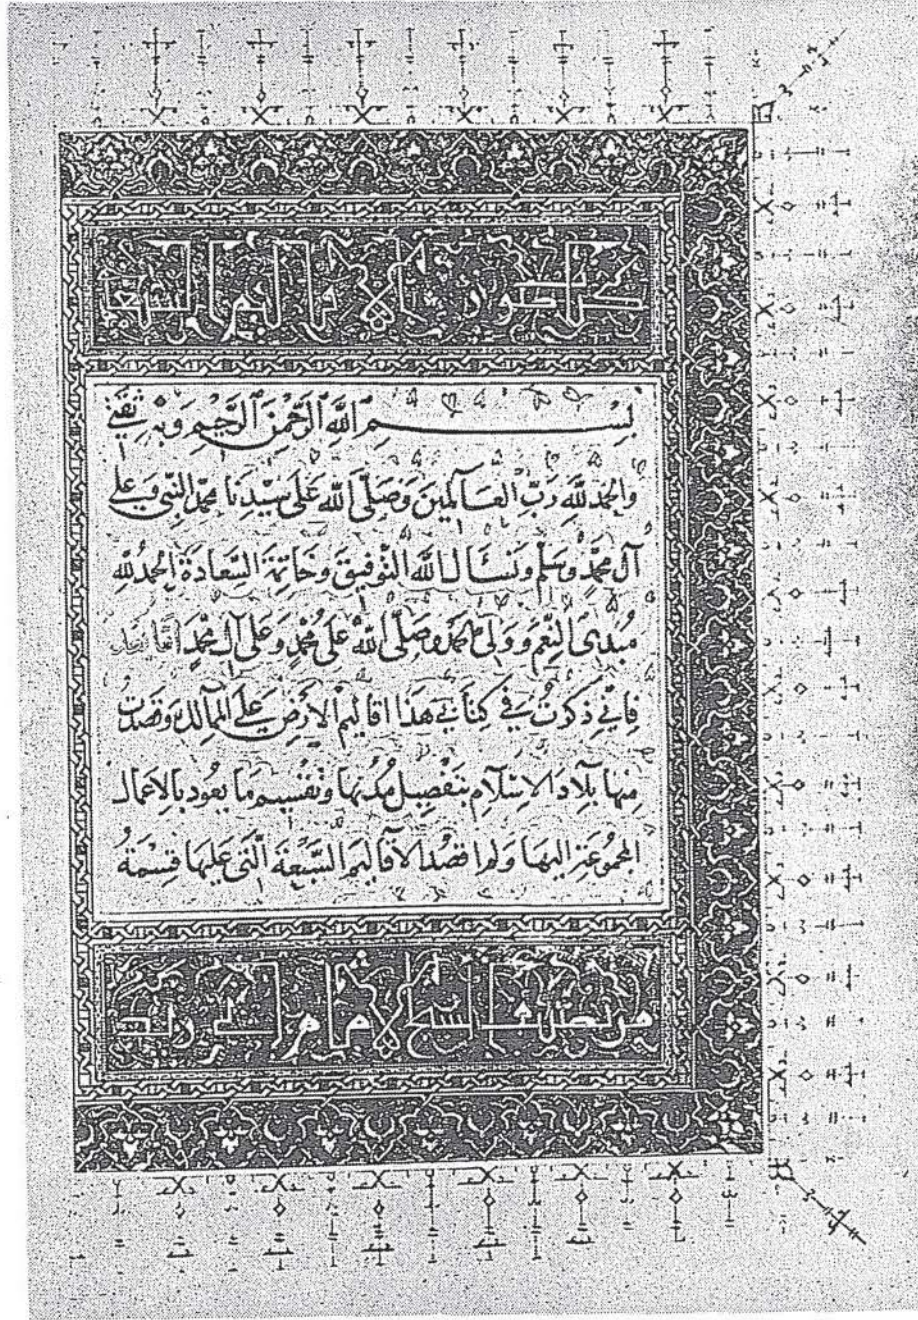 كتاب صور الاقاليم السبعة
بِسْمِ اللَّهِ الرَّحْمٰنِ الرَّحِيْمِ وَبِهِ ثِقَتِي
والحمد للّه رَبّ العَالَمِينَ وَصَلَّى اللّه عَلَى سَيّدِنَا محمّد النّبِي وَعَلى
آل محمَّدٍ وسَلم ونَسْأل اللَّه التَّوفيقَ وخَاتِمَةَ السَّعادَةِ الحمدُ للّه
مُبدىِ النِّعَم وَوَلىّ الحمد وصَلَّى اللَّه عَلَى مُحمَّدٍ وَعَلى آل محمَّدٍ امَّا بَعْد
فاِنّي ذكَرتُ في كتَابي هَذَا اقاليمَ الارَضِ عَلى الممالك وَقصَدتُ
مِنهَا بلَادَ الاِسْلَام بتَفْصِيل مُدُنهَا وتَقْسِيم مَا يَعُود بالاعمَال
المجمُوعَةِ اليهَا وَلم اقصُد الاقاَليمَ السَّبْعَةَ الَّتى عَليهَا قِسْمَةُ
من تصنيف الشيخ الامام ابى زيد